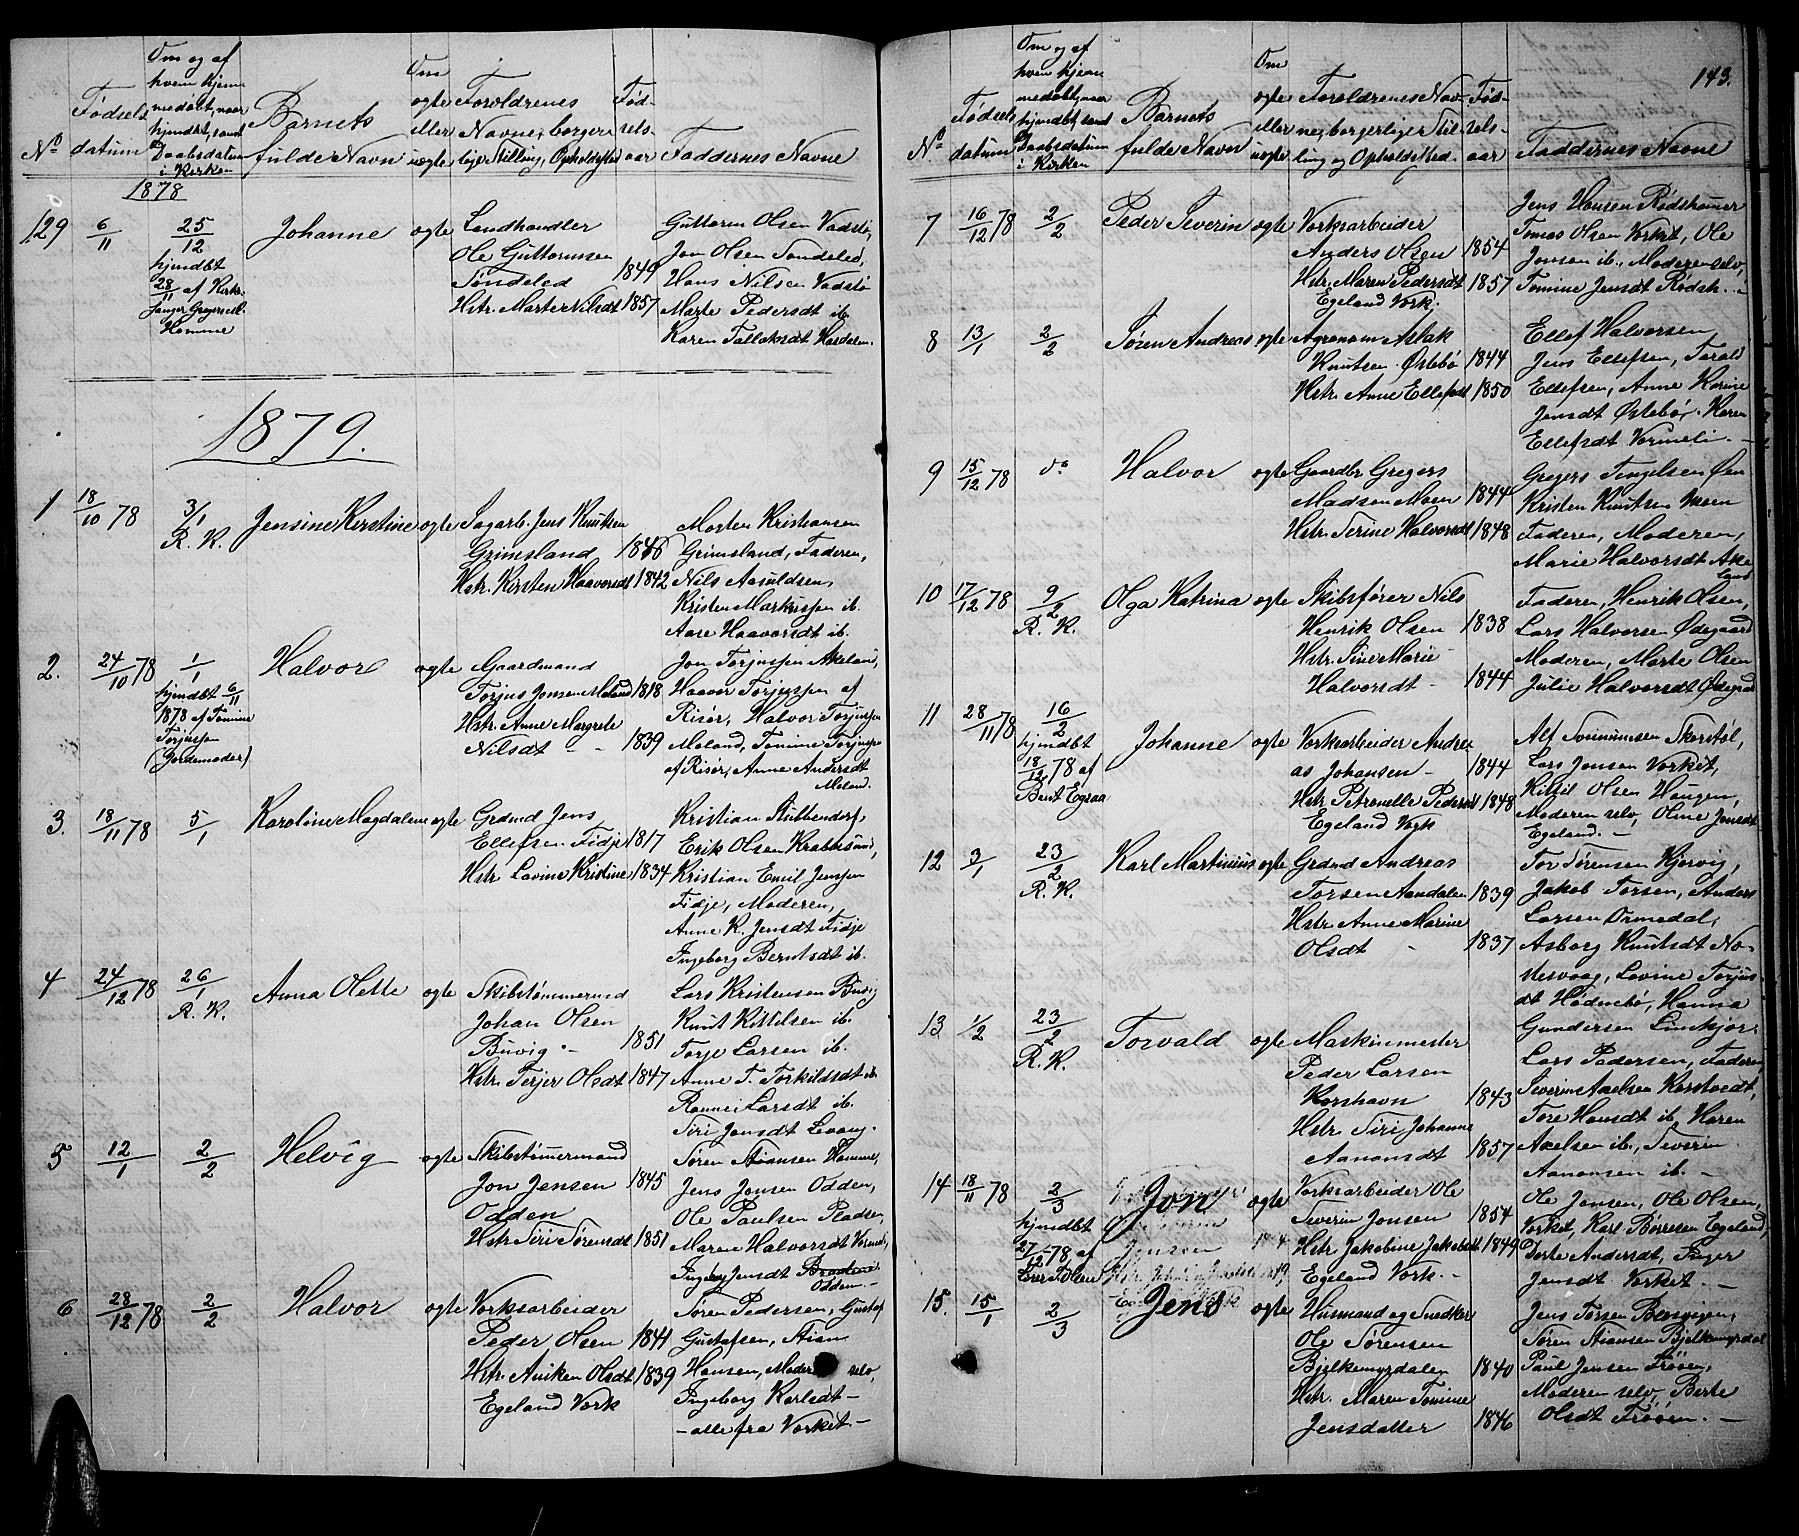 No
Fødsels
datum
Om og af
hvem hjem
medøbt, naar
hjmdøbt, samt
Daabsdatum
i Kirken
Barnets
fulde Navn
Om
ægte
eller
uægte
Forældrenes
Navne, borger
lige Stilling, Opholdssted
Fød-
sels-
aar
Faddernes Navne
1878
129
6/11
25/12
hjmdbt
28/11 af Kirke-
sanger Gregersen
Hommer
Johanne
ægte
Landhandler
Ole Guttormsen
Søndeled 1849
Hstr. Marte Nilsdt 1857
Guttorm Olsen Vadstø,
Jon Olsen Søndeled,
Hans Nilsen Vadstø
Marte Pedersdt ib.
Karen Tallaksdt Hasdalen.
1879.
1
18/10 78
3/1
R. K.
Jensine Kerstine
ægte
Sagarb. Jens Knutsen
Grimsland 1846
Hstr. Kirsten Haavorsdt 1842
Mogten Kristiansen
Grimsland, Faderen,
Nils Asuldsen,
Kristen Markussen ib.
Aase Haavorsdt ib.
2.
24/10 78
1/1
hjmdbt 6/11
1878 af Tomine
Torjussen
(Jordemoder)
Halvor
ægte
Gaardmand
Torjus Jonsen Moland 1818
Hstr. Anne Margrete
Nilsdt - 1839
Jon Torjussen Akeland,
Haavor Torjussen af
Risør, Halvor Torjussen
Moland, Tomine Torjussen
af Risør, Anne Andersdt
Moland.
3.
18/11 78
5/1
Karoline Magdalene
ægte
Grdmd Jens
Ellefsen Fidje 1817
Hstr. Lovine Kristine 1834
Kristian Stubbendorf,
Erik Olsen Krabbesund,
Kristian Emil Jenssen
Fidje, Moderen,
Anne K. Jensdt Fidje
Ingeborg Berntsdt ib.
4
24/12 78
26/1
R. K.
Anna Olette
ægte
Skibstømmermd
Johan Olsen
Buvig - 1851
Hstr. Terjer Olsdt 1847
Lars Kristensen Buvig
Knut Kittilsen ib.
Torje Larsen ib.
Anne T. Torkildsdt ib
Ronnei Larsdt ib.
Siri Jonsdt Levang.
5
12/1
2/2
Helvig
ægte
Skibstømmermand
Jon Jensen 1845
Odden
Hstr. Siri Sørensdt 1851
Søren Stiansen Homme,
Jens Jonsen Odden,
Ole Paulsen Pladsen,
Maren Halvorsdt Vormeli,
Ingeborg Jensdt
Odden. -
6
28/12 78
2/2
Halvor
ægte
Verksarbeider
Peder Olsen 1841
Hstr. Aniken Olsdt 1839
Egeland Verk
Søren Pedersen, Gustaf
Gustafsen, Stian
Hansen, Moderen selv,
Ingeborg Karlsdt -
- alle fra Verket -
143.
No
Fødsels
datum
Om og af
hvem hjem
medøbt, naar
hjmdøbt, samt
Daabsdatum
i Kirken
Barnets
fulde Navn
Om
ægte
eller
uægte
Forældrenes Nav-
ne, borgerlige Stil-
ling og Opholdssted.
Fød-
sels-
aar
Faddernes Navne
7
16/12 78
2/2
Peder Severin
ægte
Verksarbeider
Anders Olsen 1854
Hstr. Maren Pedersdt 1857
Egeland Verk.
Jens Hansen Rødshammer
Tomas Olsen Verket, Ole
Jonsen ib., Moderen selv,
Tomine Jensdt Rødsh. -
8
13/1
2/2
Søren Andreas
ægte
Agronom Aslak
Knutsen Østebø 1844
Hstr. Anne Ellefsdt 1850
Ellef Halvorsen,
Jens Ellefsen, Torald
Ellefsen, Anne Karine
Jensdt Østebø, Karen
Ellefsdt Vormeli. -
9
15/12 78
do
Halvor
ægte
Gaardbr. Gregers
Madsen Moen 1844
Hstr. Serine Halvorsdt 1848
Gregers Tengelsen Øen
Kristen Knutsen Moen
Faderen, Moderen,
Marie Halvorsdt Ake
land
10
17/12 78
9/2
R. K.
Olga Katrina
ægte
Skibsfører Nils
Henrik Olsen 1838
Hstr. Sine Marie
Halvorsdt - 1844
Faderen, Henrik Olsen,
Lars Halvorsen Ødegaard
Moderen, Marte Olsen
Julie Halvorsdt Ødegaard
11
28/11 78
16/2
hjmdbt
18/12 78 af
Bent Egraa
Johanne
ægte
Verksarbeider Andre
as Johansen - 1844
Hstr. Petronelle Pedersdt 1848
Egeland Verk
Alf Tommesen Skorstøl,
Lars Jensen Verket,
Kittil Olsen Haugen,
Moderen selv, Oline Jonsdt
Egeland. -
12
3/1
23/2
R. K.
Karl Martinius
ægte
Grdmd Andreas
Torsen Aandalen 1839
Hstr. Anne Marine
Olsdt - 1837
Tor Sørensen Kjervig,
Jakob Torsen, Anders
Larsen Ormedal,
Asborg Knutsdt No-
vesvaag, Lovine Torjus-
dt Hødnebø, Hanna
Gundersen Limkjær
13
1/2
23/2
R. K.
Torvald
ægte
Maskinmester
Peder Larsen
Korshavn 1843
Hstr. Siri Johanne
Aanonsdt 1857
Lars Pedersen, Faderen
Severin Axelsen Karstvedt,
Tore Hansdt ib. Karen
Axelsen ib., Severin
Aanonsen ib. -
14
18/11 78
2/3
hjmdbt
27/12-78 af
Lars T. Olsen
Jon
ægte
Verksarbeider Ole
Severin Jonsen 1854
Hstr. Jakobine Jakobsdt 1849
Egeland Verk. -
Ole Jensen, Ole Olsen,
Verket, Karl Børresen Egeland,
Dorte Andersdt, Inger
Jensdt Verket. -
15.
15/1
2/3
Jens
ægte
Husmand og Snedker
Ole Sørensen
Bjelkemyrdalen 1840
Hstr. Maren Tomine
Jensdatter 1846
Jens Torsen Bersvigen,
Søren Stiansen Bjelkemyrdal
Paul Jensen Trøen,
Moderen selv, Berte
Olsdt Trøen. -